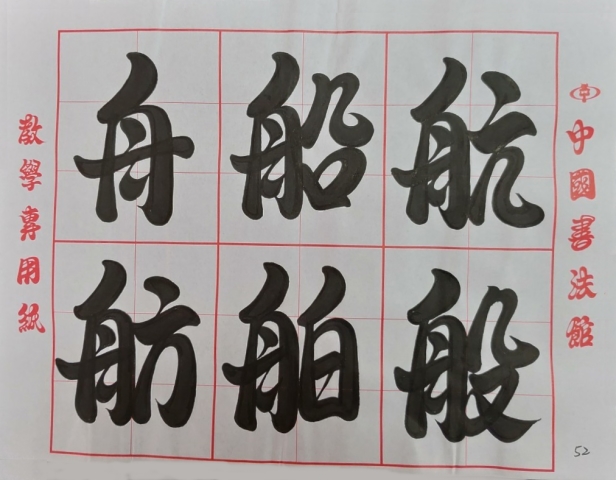 舟船航
舫舶般
教學專用紙
中國書法館
52